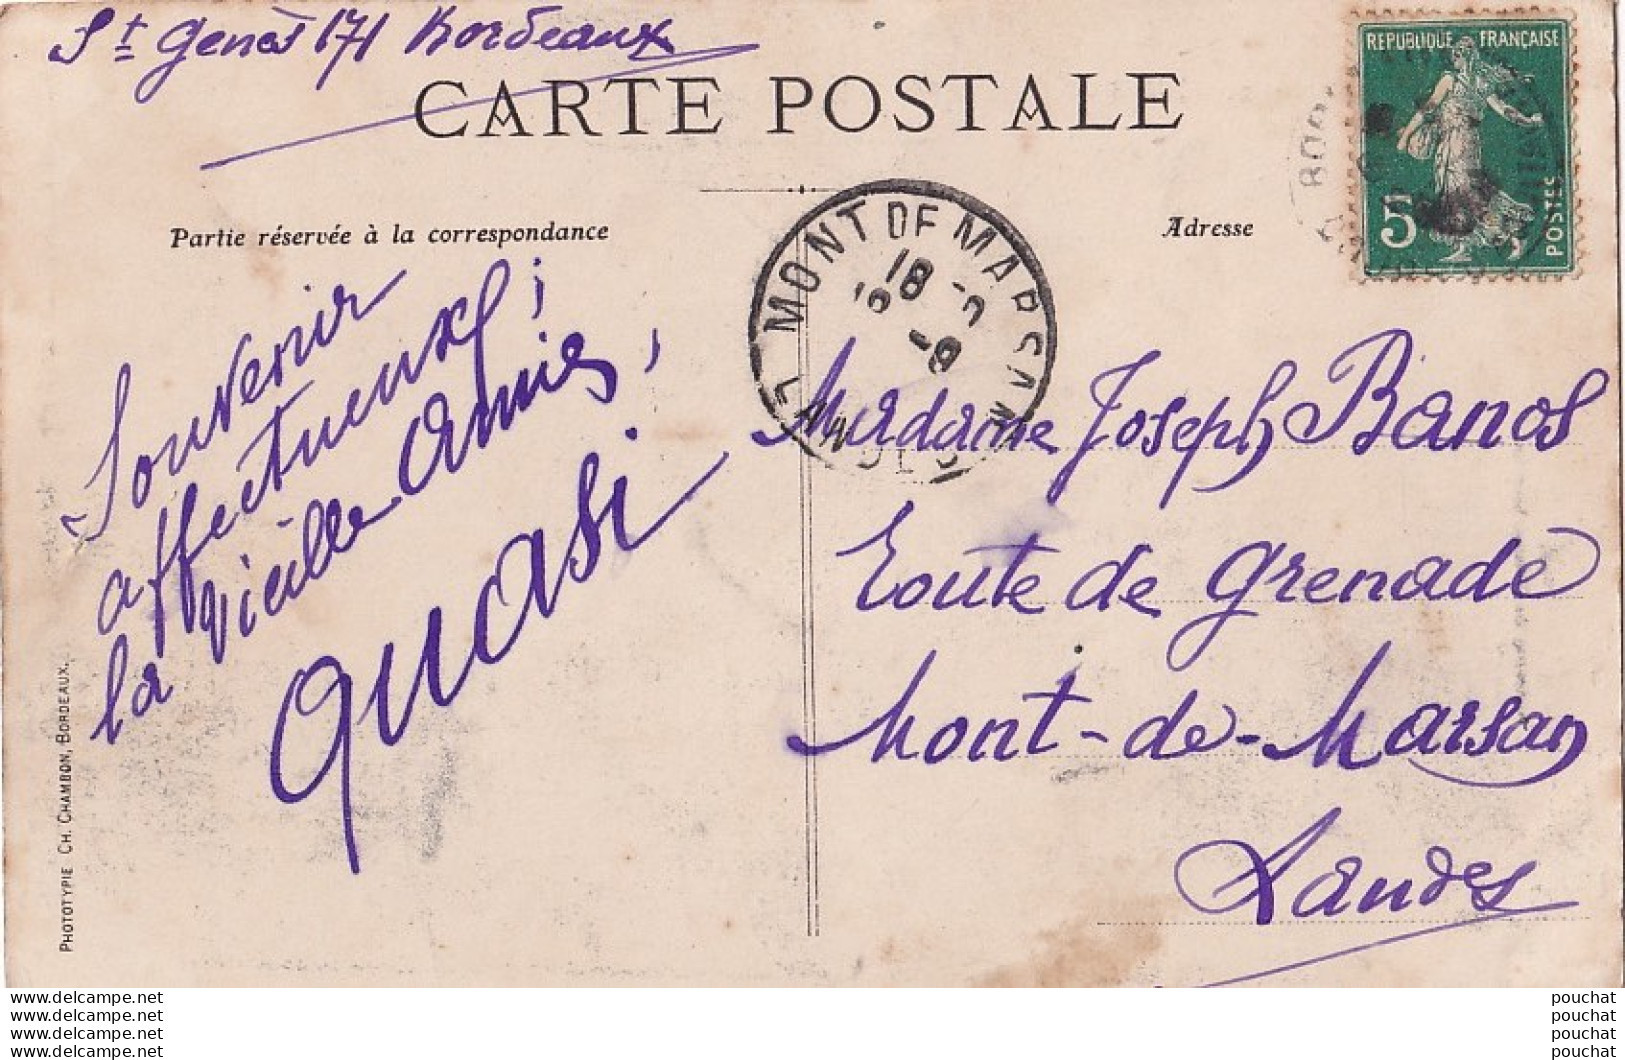 St Genès 171 Bordeaux
CARTE POSTALE
REPUBLIQUE FRANÇAISE
5
POSTES
Partie réservée à la correspondance
Adresse
MONT DE MARSAN
LANDES
18
Souvenir
affectueux,
la vieille amie,
Quasi
Madame Joseph Banos
Route de Grenade
Mont-de-Marsan
Landes
PHOTOTYPIE CH. CHAMBON, BORDEAUX.
www.delcampe.net
www.delcampe.net
www.delcampe.net
www.delcampe.net
pouchat
pouchat
pouchat
pouchat